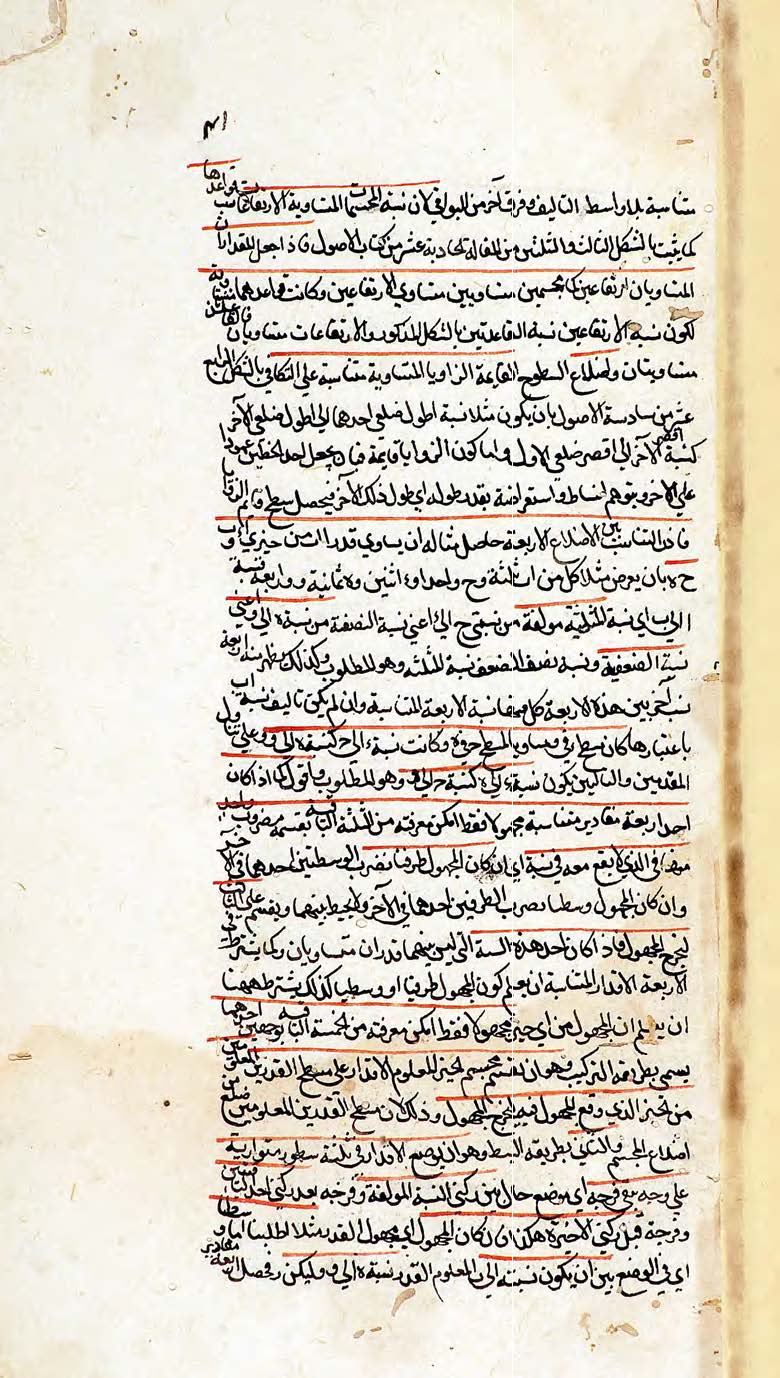 متناسبة بلا واسط التاليف وفرق آخر من البواقي لان نسبة المجسمات المتساوية الارتفاعات تناسب قواعدها
كما يثبت بالشكل الثالث والثلثين من المقالة الحادية عشر من كتاب الاصول فاذا جعل المقداران
المتساويان ارتفاعين كالمجسمين متساويين متساوي الارتفاعين وكانت قواعدهما متساوية
لكون نسبة الارتفاعين نسبة القاعدتين بالشكل المذكور والارتفاعات متساويان فالقاعدتان
متساويتان واضلاع السطوح القايمة الزوايا المتساوية متناسبة علي التكافي بالشكل الرابع
عشر من سادسة الاصول بان يكون مثلا نسبة اطول ضلعي احدهما الي اطول ضلعي الآخر
كنسبة اقصر الآخر الي اقصر ضلعي الاول واما كون الزوايا قايمة فبان يجعل احد الخطين عمودا
علي الآخر ويتوهم انبساط واستعراضه بقدر طوله اي طول ذلك الآخر فيحصل سطح قائم الزوايا
فاذن التناسب بين الاضلاع الاربعة حاصل مثاله ان يساوي قدر ا من حيزي ا ب و
ح ه بان يعرض مثلا كل من ا ثلثة و ح واحد و ء اثنين و ه ثمانية و و اربعة فنسبة
ا الي ب اي نسبة المثلثية مولفة من نسبتي ح الي ء اعني نسبة النصفية من نسبة ه الي و اعني
نسبة الضعفية ونسبة نصف الضعف نسبة المثلثه وهو المطلوب وكذلك
نسب آخر بين هذه الاربعة كل مخالفة الاربعة المتناسبة وان لم يكن تاليف نسبة ا ب
باعتبارها كان سطح
المقدمين والتاليين يكون نسبة ء الي ه كنسبة ح الي و وهو المطلوب واقول كما اذا كان
احد اربعة مقادير متناسبة مجهولا فقط امكن معرفته من الثلثة الباقية بقسمة مضروب واحد
منها في الذي لا يقع معه في نسبة اي ان كان المجهول طرفا نضرب الوسطين احدهما في الآخر
وان كان المجهول وسطا نضرب الطرفين احدهما في الآخر ولا يحيط بينهما ويقسم علي الثالث
ليخرج المجهول فاذا كان احد هذه الستة التي ليس بينهما قدران متساويان وكما يشترط في
الاربعة الاقدار المتناسبة ان يعلم كون المجهول طرفيا او وسطيا كذلك يشترط ههنا
ان يعلم ان المجهول من اي حيز مجهولا فقط امكن معرفته من الخمسة الباقية بوجهين احدهما
يسمي بطريقة التركيب وهو ان يقسم مجسم الحيز المعلوم الاقدار علي مسطح القدرين المعلومين
من الحيز الذي وقع المجهول فيه ليخرج المجهول وذلك لان مسطح القدرين المعلومين من ضلع
اضلاع المجسم والثاني بطريقة البسط وهو ان يوضع الاقدار في ثلثة سطور متوازية
علي وجه يقع فرجه اي موضع خال بين ركني النسبة المولفة وفرجه بعد ركني احد البسيطتين
وفرجة قبل ركني الاخيرة هكذا ان كان المجهول اي مجهول القدر مثلا اطلبنا
اي في الوضع بين ان يكون نسبته الي ب المعلوم القدر نسبة ه الي و وليكن ر فحصل اربعة مقادير